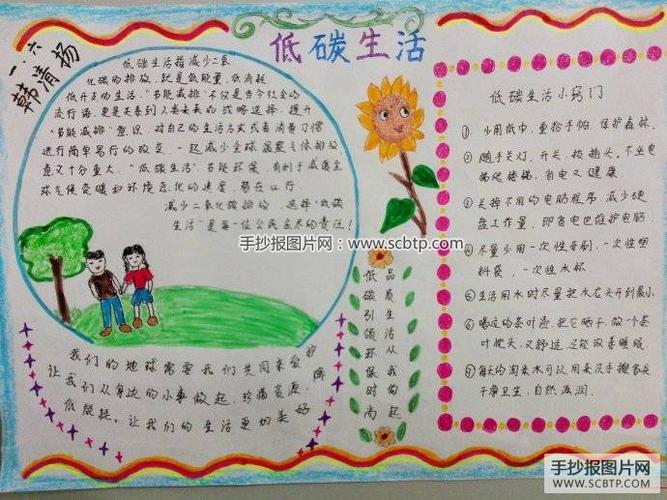 一.六
韩清扬
低碳生活
低碳生活指减少二氧
化碳的排放,就是低能量、低消耗
低开支的生活。"节能减排"不仅是当今社会的
流行语,更是关系到人类未来的战略选择。提升
"节能减排"意识,对自己的生活方式或者消费习惯
进行简单易行的改变,一起减少全球温室气体排放
意义十分重大。"低碳生活"节能环保,有利于减缓全
球气候变暖和环境恶化的速度,势在必行
减少二氧化碳排放,选择"低碳
生活"是每一位公民应尽的责任!
我们的地球需要我们共同来爱护
让我们从身边的小事做起,珍惜资源,降
低能耗,让我们的生活更加美好
低碳引领环保时尚
品质生活从我
起
低碳生活小窍门
①少用纸巾,重拾手帕,保护森林
②随手关灯、开关、拔插头,不坐电
梯爬楼梯,省电又健康
③关掉不用的电脑程序,减少硬
盘工作量,即省电也维护电脑.
④尽量少用一次性牙刷,一次性塑
料袋,一次性水杯
⑤生活用水时尽量把水龙头开到最小
⑥喝过的茶叶渣,把它晒干,做一个茶
叶枕头,又舒适,还能改善睡眠
⑦每天的淘米水可以用来洗手擦家具
干净卫生,自然滋润.
手抄报图片网:www.scbtp.com
手抄报图片网
SCBTP.COM